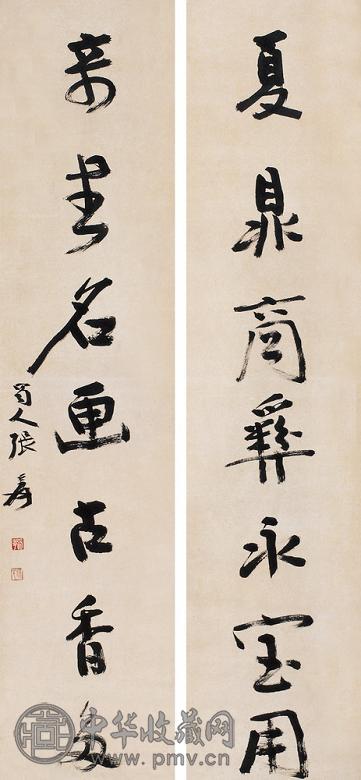 夏鼎商彝永宝用
奇書名画古香多
蜀人張爰
中华收藏网
www.pmv.cn